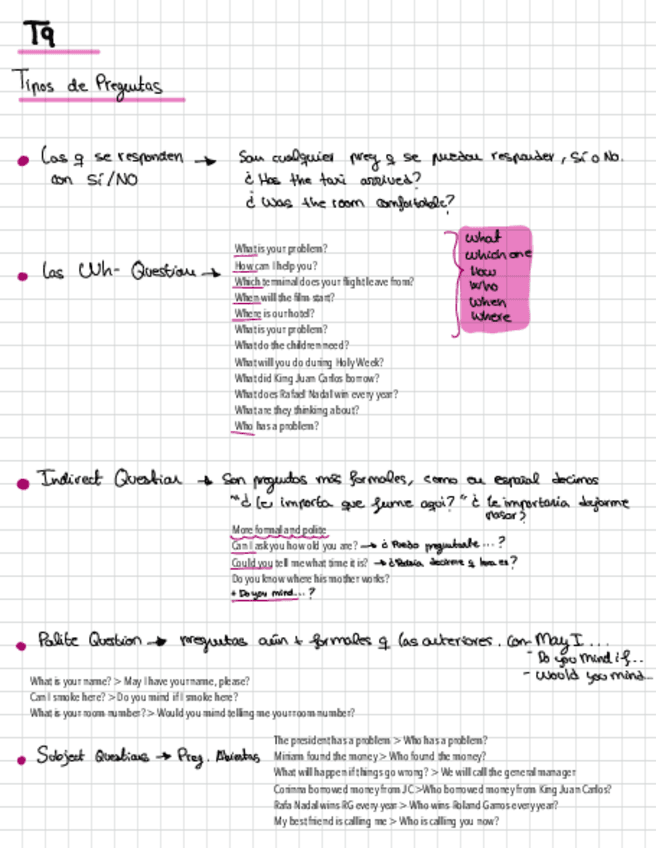 T9
Tipos de Preguntas
Las q se responden → Son cualquier preg q se puedan responder, Sí o No.
con Sí/NO
¿ Has the taxi arrived?
¿ Was the room comfortable?
Las Wh- Question →
What is your problem?
How can I help you?
Which terminal does your flight leave from?
When will the film start?
Where is our hotel?
What is your problem?
What do the children need?
What will you do during Holy Week?
What did King Juan Carlos borrow?
What does Rafael Nadal win every year?
What are they thinking about?
Who has a problem?
What
Which one
How
Who
When
Where
Indirect Question → Son preguntas más formales, como en español decimos
"¿ le importa que fume aquí?" ¿ le importaría dejarme
pasar?
More formal and polite
Can I ask you how old you are? → ¿ Puedo preguntarle...?
Could you tell me what time it is? → ¿Podría decirme q hora es?
Do you know where his mother works?
+ Do you mind...?
Polite Question → preguntas aún + formales q las anteriores. Con - May I ...
- Do you mind if...
- Would you mind...
What is your name? > May I have your name, please?
Can I smoke here? > Do you mind if I smoke here?
What is your room number? > Would you mind telling me your room number?
Subject Questions → Preg. Abiertas
The president has a problem > Who has a problem?
Miriam found the money > Who found the money?
What will happen if things go wrong? > We will call the general manager
Corinna borrowed money from JC > Who borrowed money from King Juan Carlos?
Rafa Nadal wins RG every year > Who wins Roland Garros every year?
My best friend is calling me > Who is calling you now?